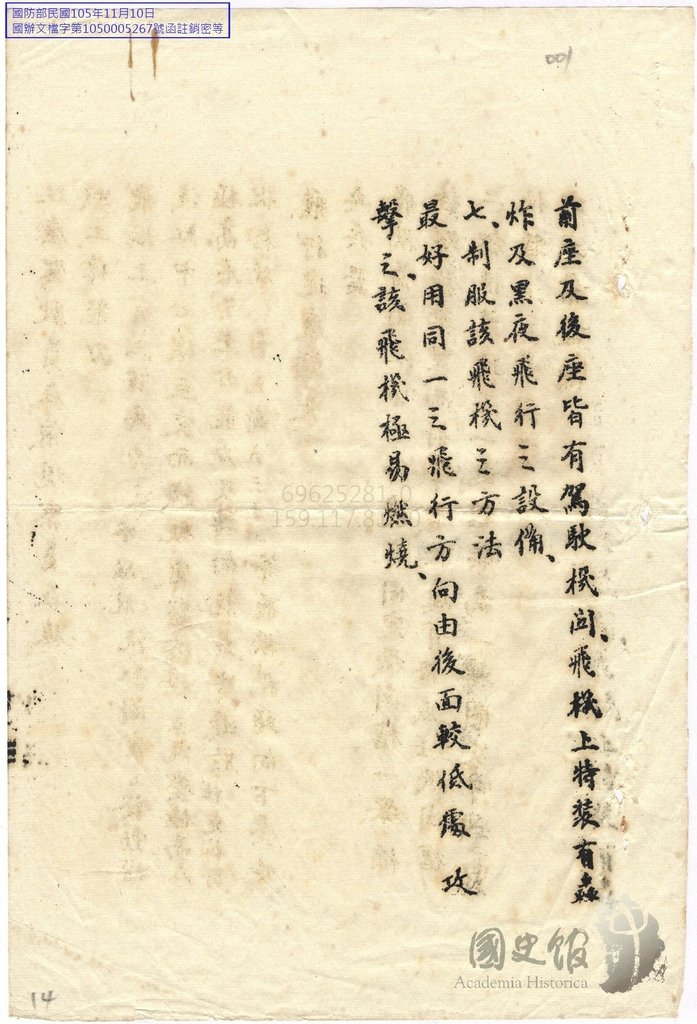 國防部民國105年11月10日
國辦文檔字第1050005267號函註銷密等
001
前座及後座皆有駕駛機関、飛機上特裝有轟
炸及黑夜飛行之設備、
七、制服該飛機之方法
最好用同一之飛行方向由後面較低處攻
擊之、該飛機極易燃燒、
69625281
159.117.8
國史館
Academia Historica
14